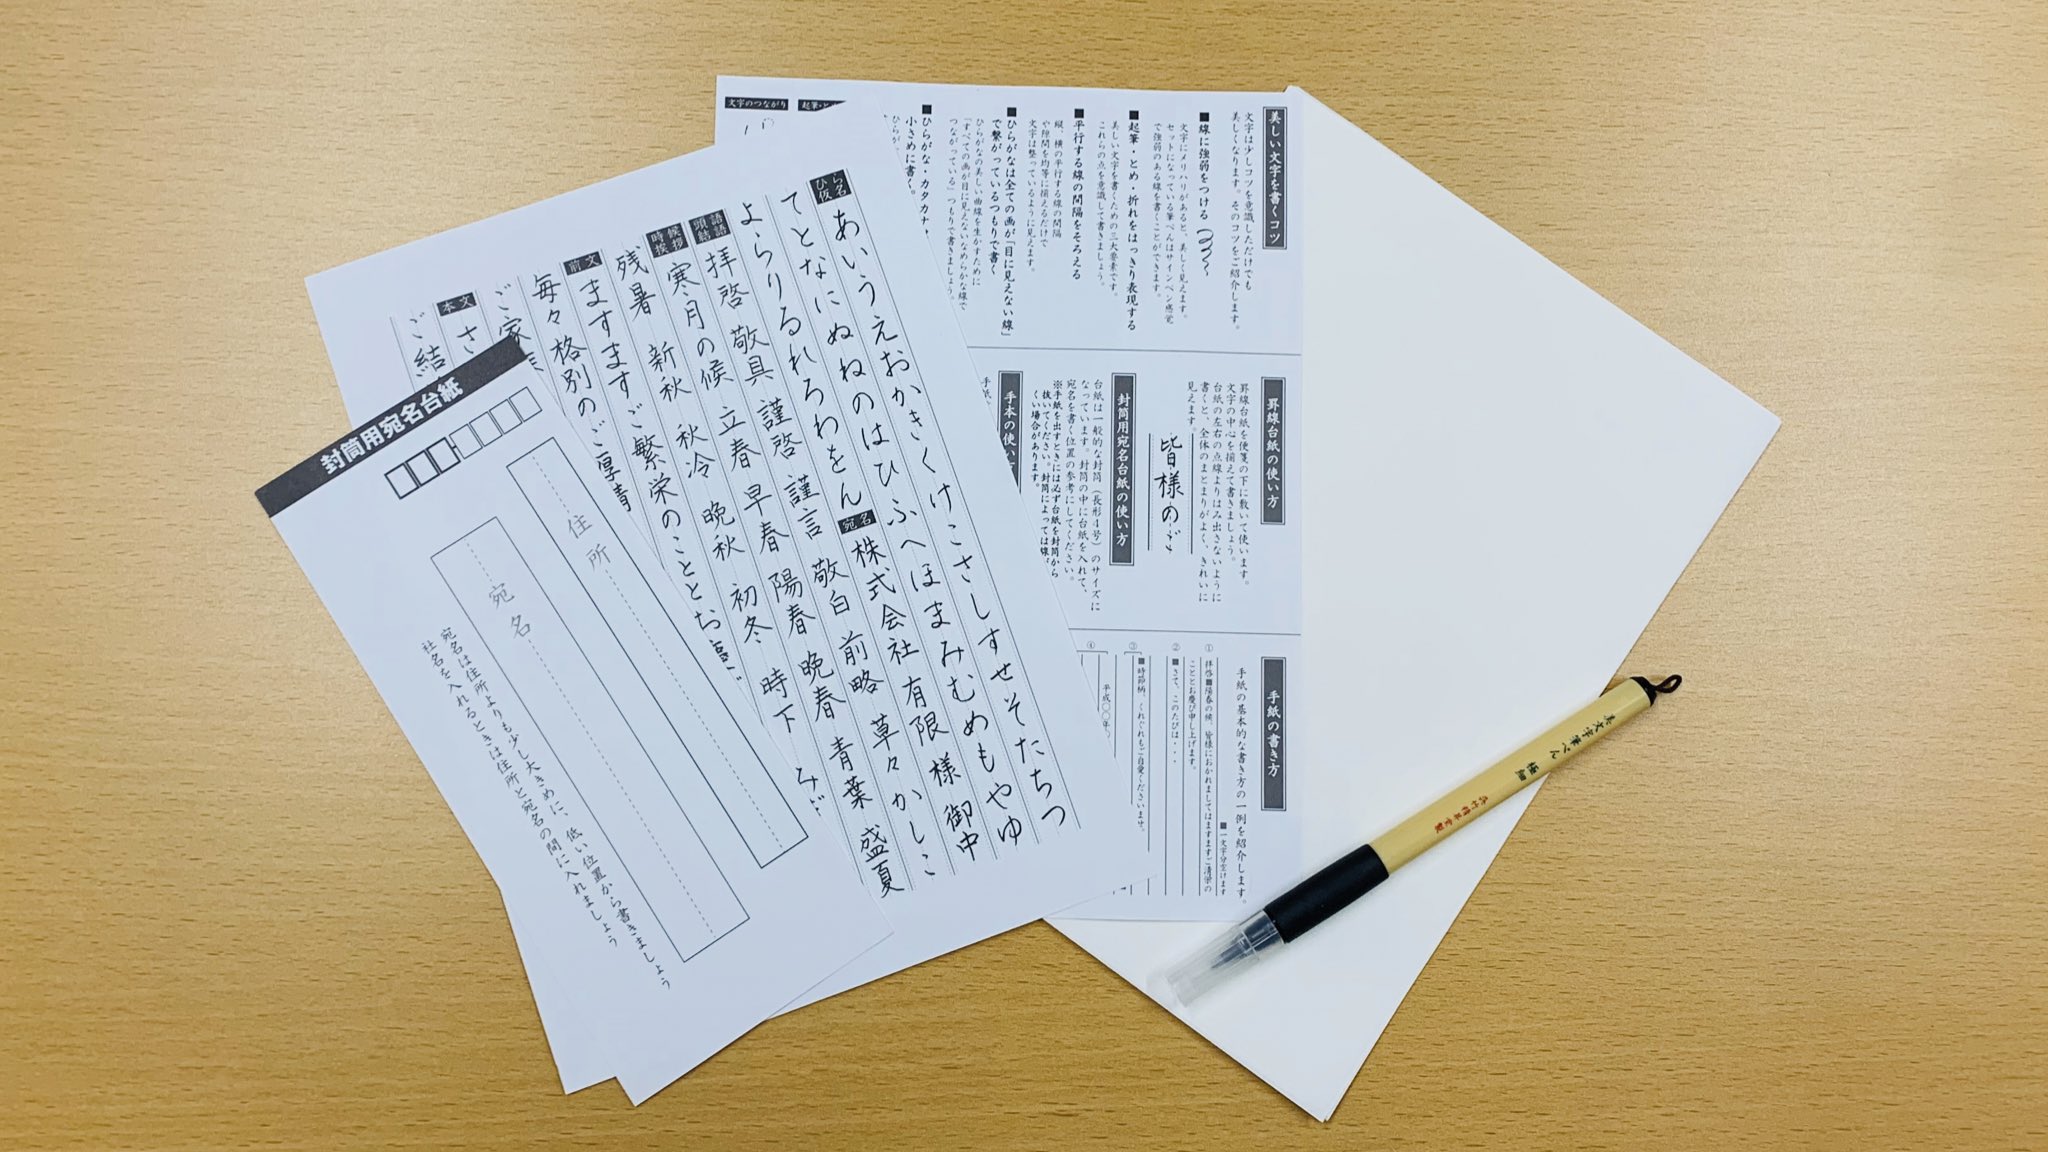 封筒用宛名台紙
住所
宛名
宛名は住所よりも少し大きめに、低い位置から書きましょう
社名を入れるときは住所と宛名の間に入れましょう
ひら仮名
あいうえおかきくけこさしすせそたちつ
てとなにぬねのはひふへほまみむめもやゆ
よらりるれろわをん
宛名
株式会社 有限 様 御中
頭語結語
拝啓 敬具 謹啓 謹言 敬白 前略 草々 かしこ
時候挨拶
寒月の候 立春 早春 陽春 晩春 青葉 盛夏
残暑 新秋 秋冷 晩秋 初冬 時下
前文
ますますご繁栄のこととお
毎々格別のご厚情
ご家
本文
さ
ご結
美しい文字を書くコツ
文字は少しコツを意識しただけでも
美しくなります。そのコツをご紹介します。
■線に強弱をつける
文字にメリハリがあると、美しく見えます。
セットになっている筆ぺんはサインペン感覚
で強弱のある線を書くことができます。
■起筆・とめ・折れをはっきり表現する
美しい文字を書くための三大要素です。
これらの点を意識して書きましょう。
■平行する線の間隔をそろえる
縦、横の平行する線の間隔
や隙間を均等に揃えるだけで
文字は整っているように見えます。
■ひらがなは全ての画が「目に見えない線」
で繋がっているつもりで書く
ひらがなの美しい曲線を生かすために
「すべての画が目に見えないなめらかな線で
つながっている」つもりで書きましょう。
■ひらがな・カタカナは
小さめに書く。
文字のつながり
罫線台紙の使い方
罫線台紙を便箋の下に敷いて使います。
文字の中心を揃えて書きましょう。
台紙の左右の点線よりはみ出さないように
書くと、全体のまとまりがよく、きれいに
見えます。
皆様のご
封筒用宛名台紙の使い方
台紙は一般的な封筒（長形4号）のサイズに
なっています。封筒の中に台紙を入れて、
宛名を書く位置の参考にしてください。
※手紙を出すときには必ず台紙を封筒から
抜いてください。封筒によっては線が
くい場合があります。
手本の使い方
手紙の書き方
手紙の基本的な書き方の一例を紹介します。
■一文字分空けます
① 拝啓■陽春の候、皆様におかれましてはますますご清栄の
こととお慶び申し上げます。
② ■さて、このたびは・・・
③ ■時節柄、くれぐれもご自愛くださいませ。
④ 平成〇〇年
美文字筆ぺん 極細
呉竹精昇堂製